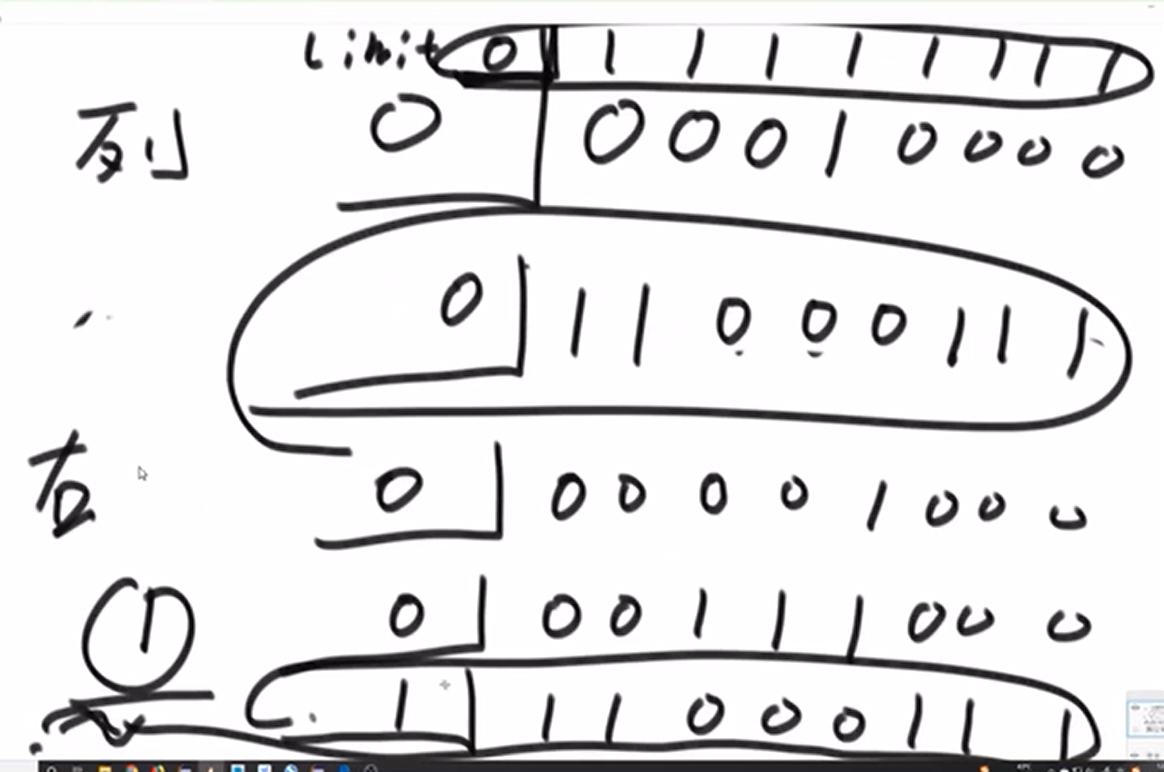 limit 0 1 1 1 1 1 1 1 1
列 0 0 0 0 1 0 0 0 0
0 1 1 0 0 0 1 1 1
右 0 0 0 0 0 1 0 0 0
① 0 0 0 1 1 1 0 0 0
~ 1 1 1 0 0 0 1 1 1